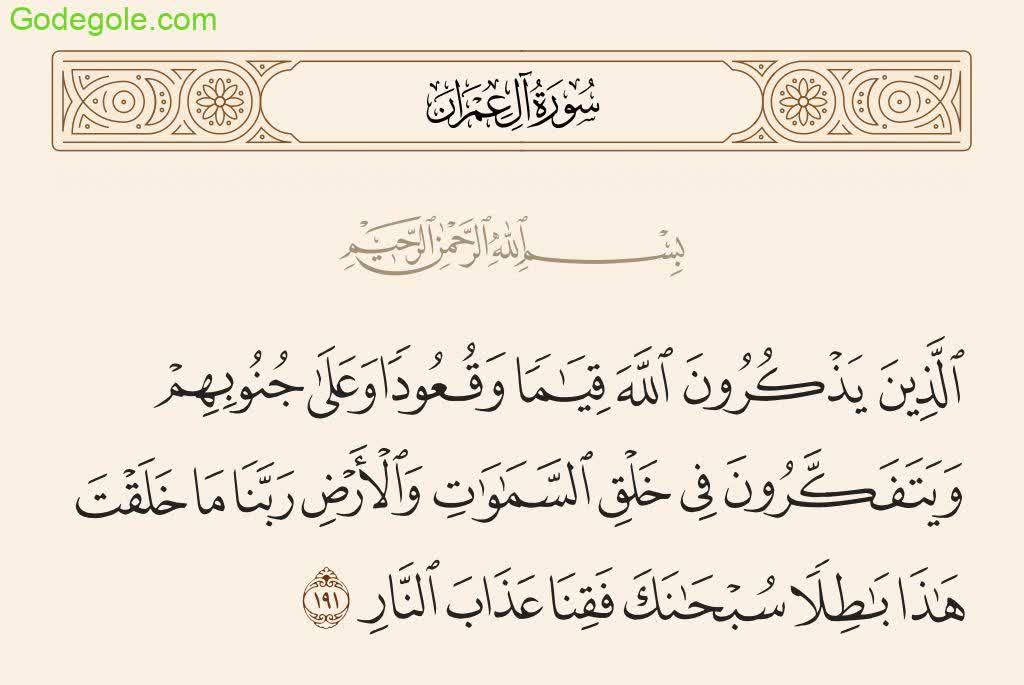 Godegole.com
سُورَةُ آلِ عِمۡرَان
بِسۡمِ ٱللَّهِ ٱلرَّحۡمَٰنِ ٱلرَّحِيمِ
ٱلَّذِينَ يَذۡكُرُونَ ٱللَّهَ قِيَٰمٗا وَقُعُودٗا وَعَلَىٰ جُنُوبِهِمۡ
وَيَتَفَكَّرُونَ فِي خَلۡقِ ٱلسَّمَٰوَٰتِ وَٱلۡأَرۡضِ رَبَّنَا مَا خَلَقۡتَ
هَٰذَا بَٰطِلٗا سُبۡحَٰنَكَ فَقِنَا عَذَابَ ٱلنَّارِ ١٩١